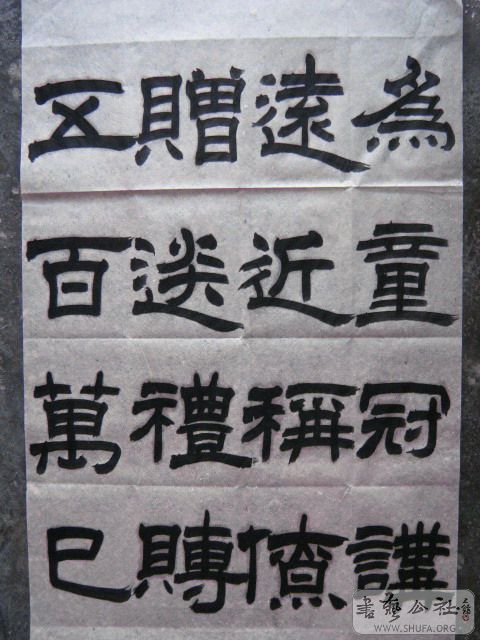 為童冠講
遠近稱僚
贈送禮賻
五百萬已
書藝公社
WWW.SHUFA.ORG